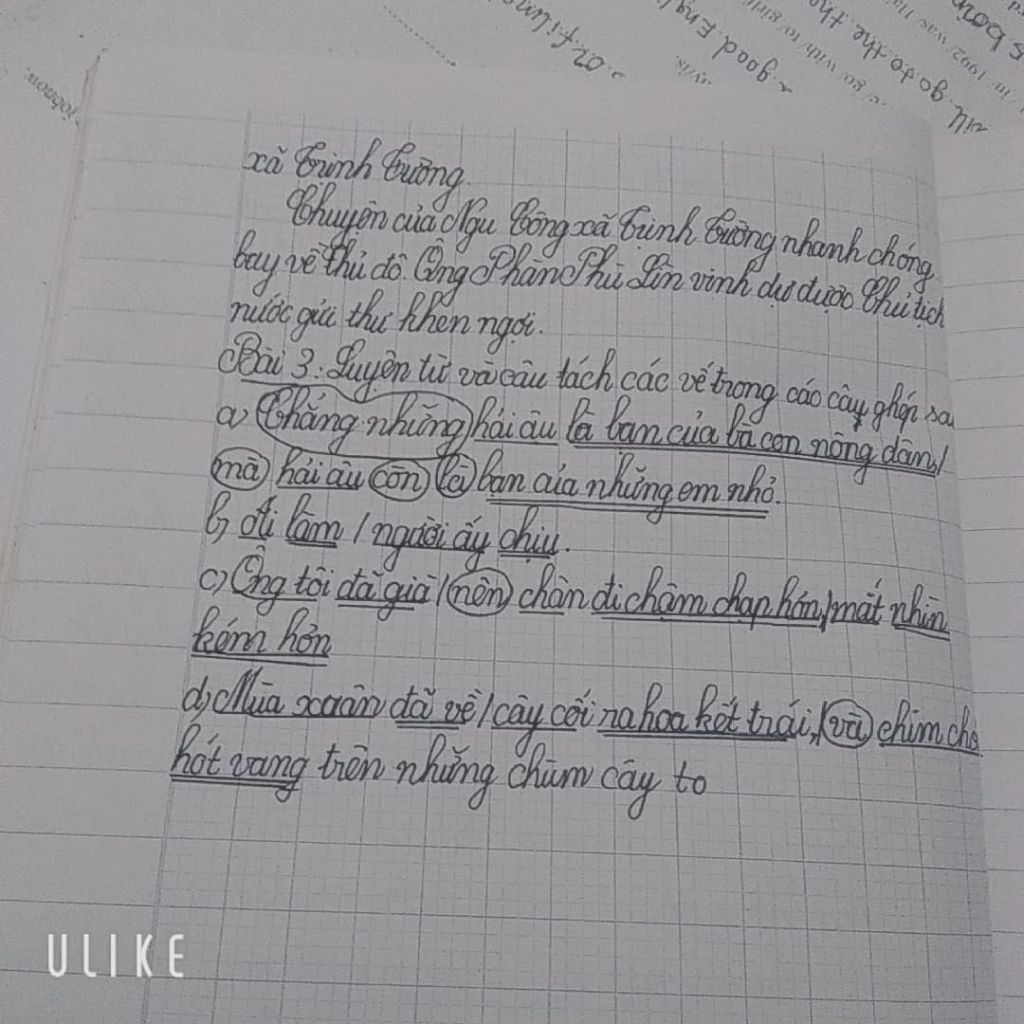 good Engl
go to the the
s born
in 1992
was
go with to girl
xã Trịnh Tường.
Chuyện của Ngu Công xã Trịnh Tường nhanh chóng
bay về thủ đô. Ông Phàn Phù Lìn vinh dự được Chủ tịch
nước gửi thư khen ngợi.
Bài 3: Luyện từ và câu tách các vế trong các câu ghép sa
a) Chẳng những hải âu là bạn của bà con nông dân, /
mà hải âu còn là bạn của những em nhỏ.
b) Ai làm / người ấy chịu.
c) Ông tôi đã già / nên chân đi chậm chạp hơn, / mắt nhìn
kém hơn
d) Mùa xuân đã về / cây cối ra hoa kết trái, / và chim chó
hót vang trên những chùm cây to
ULIKE